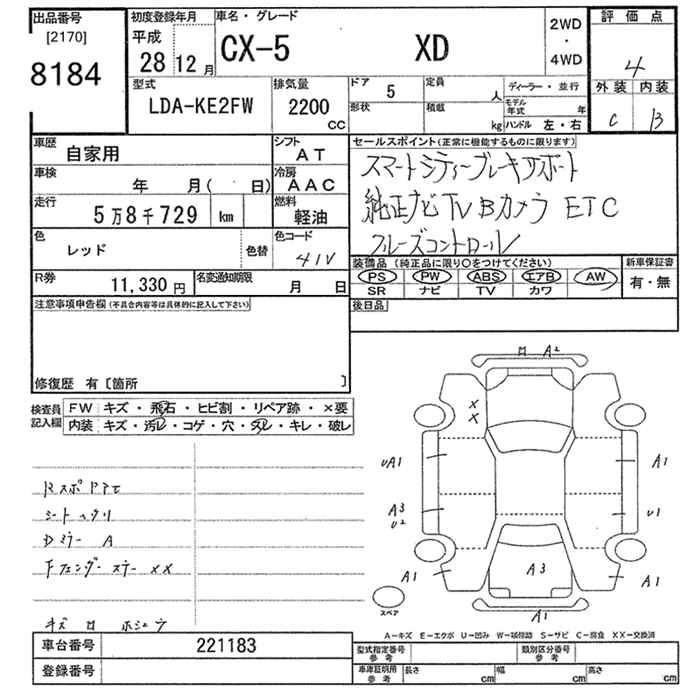 出品番号 初度登録年月 車名・グレード 2WD・4WD 評価点
[2170] 平成 CX-5 XD 4
8184 28 12月 外装 内装
型式 排気量 ドア 5 定員 人 ディーラー・並行 C B
LDA-KE2FW 2200 CC 形状 積載 kg モデル年式 年 ハンドル 左・右
車歴 自家用 シフト AT セールスポイント(正常に機能するものに限ります)
車検 年 月( 日) 冷房 AAC スマートシティーブレーキサポート
走行 5万8千729 km 燃料 軽油 純正ナビ TV Bカメラ ETC
色 レッド 色替 色コード 41V クルーズコントロール
R券 11,330円 名変通知期限 月 日 装備品(純正品に限り○をつけてください) 新車保証書
PS PW ABS エアB AW 有・無
SR ナビ TV カワ
注意事項申告欄(不具合内容等は具体的に記入して下さい) 後日品
修復歴 有〔箇所 〕
検査員記入欄 FW キズ・飛石・ヒビ割・リペア跡・×要
内装 キズ・汚レ・コゲ・穴・スレ・キレ・破レ
A2
XX
UA1 A1
A3 U2 U1
A1 A3 A1
A1
スペア
Rスポ
シート
Dミラー A
Fフェンダー ステー XX
キズ
A-キズ E-エクボ U-凹み W-補修跡 S-サビ C-腐食 XX-交換済
車台番号 221183 型式指定番号 参考 類別区分番号 参考
登録番号 車庫証明用 参考 長さ cm 幅 cm 高さ cm